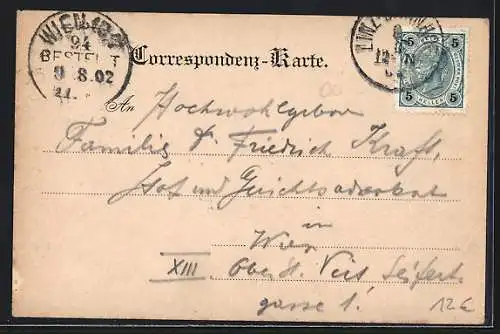 WIEN
94
BESTELLT
9 8.02
Correspondenz-Karte.
LINZ
5 5
5 HELLER 5
An Hochwohlgebor
Familie Dr. Friedrich Kraft,
Hof und Gerichtsadvokat
in
Wien
XIII. Ober St. Veit Seifert
gasse 1!
12€